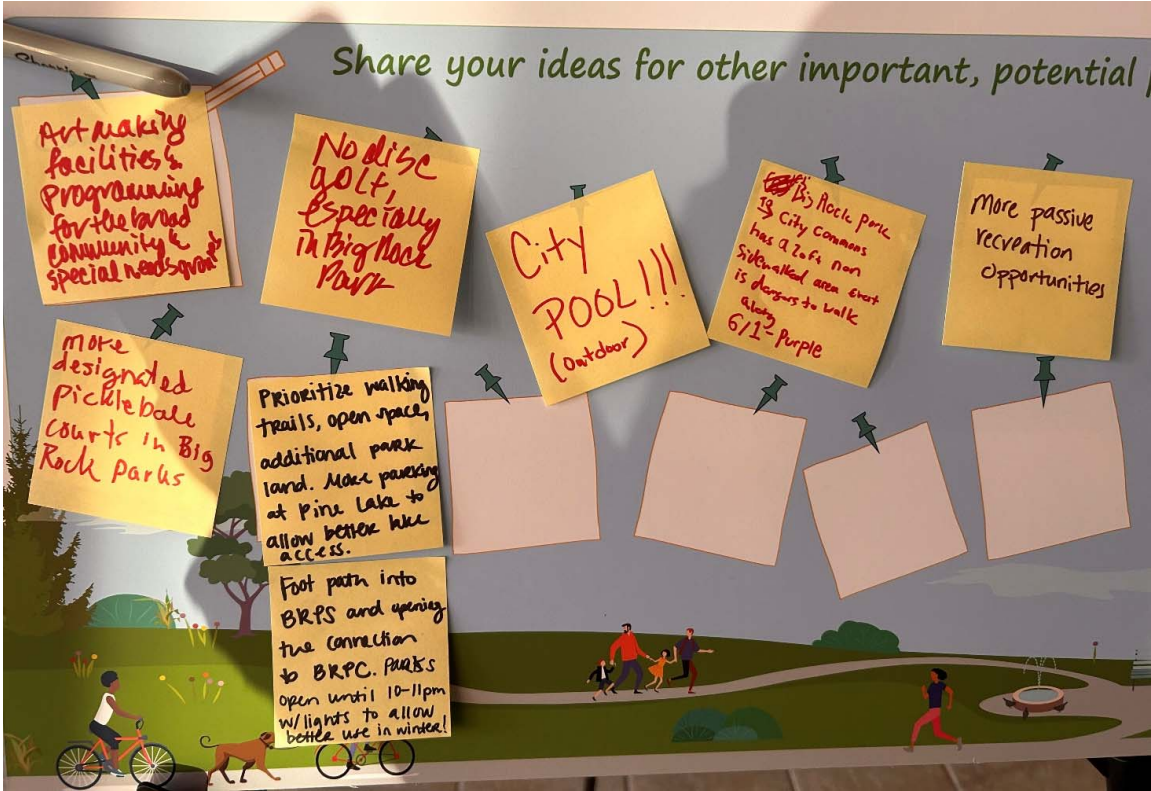 Sharpie
Share your ideas for other important, potential p
Art making
facilities &
programming
for the broad
community &
special needs
No disc
golf,
especially
in Big Rock
Park
City
POOL!!!
(outdoor)
Big Rock park
to City commons
has a lot of non
sidewalked area that
is dangers to walk
along
6/1 - Purple
More passive
recreation
opportunities
More
designated
Pickleball
courts in Big
Rock Parks
Prioritize walking
trails, open space,
additional park
land. More parking
at Pine Lake to
allow better lake
access.
Foot path into
BRPS and opening
the connection
to BRPC. Parks
open until 10-11pm
w/lights to allow
better use in winter!